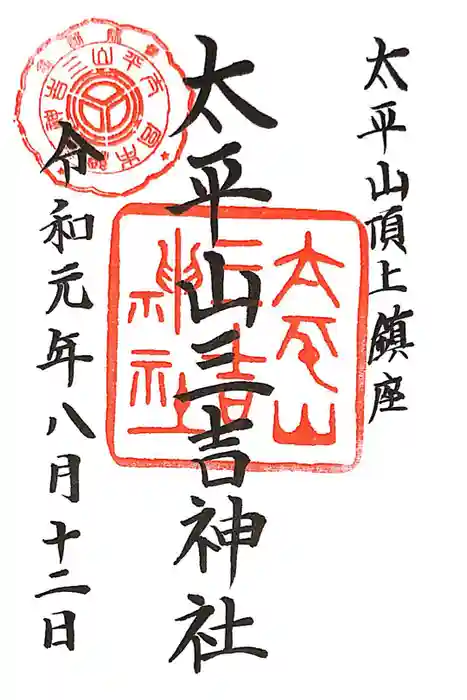 太平山頂上鎮座
太平山三吉神社
令和元年八月十二日
太平山
三吉
神社